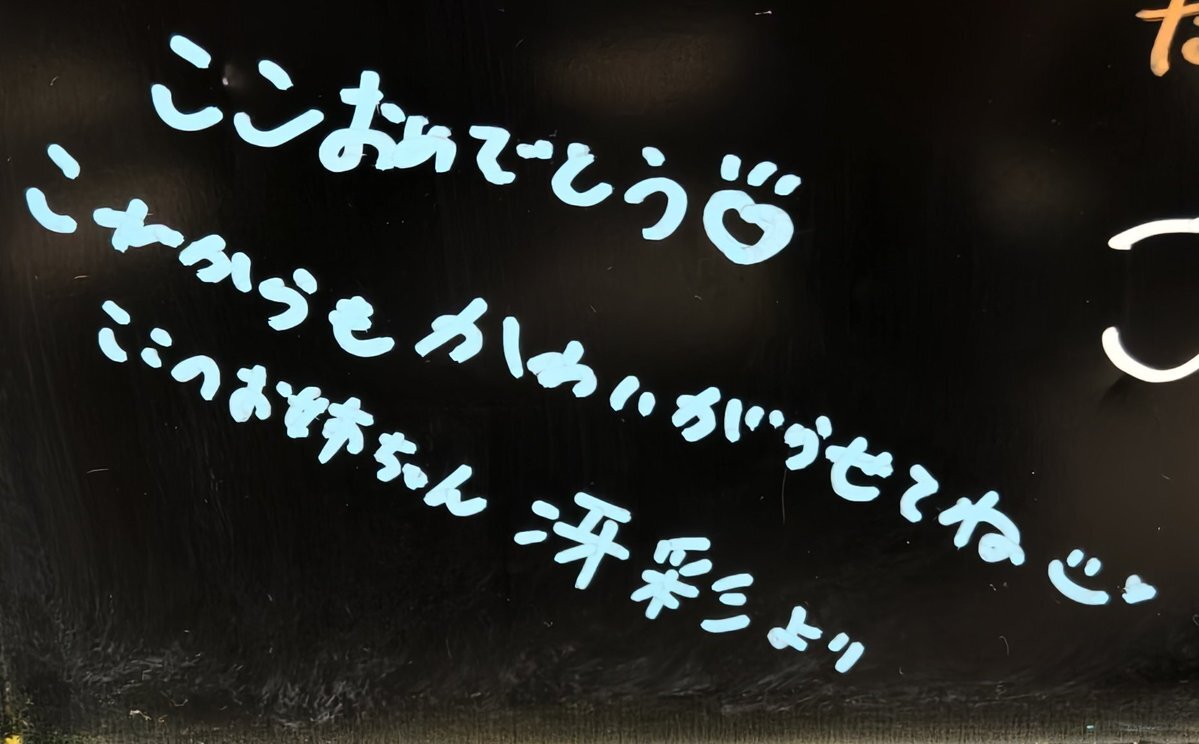 ここおめでとう♡
これからもかわいがらせてね
ここのお姉ちゃん 冴彩より